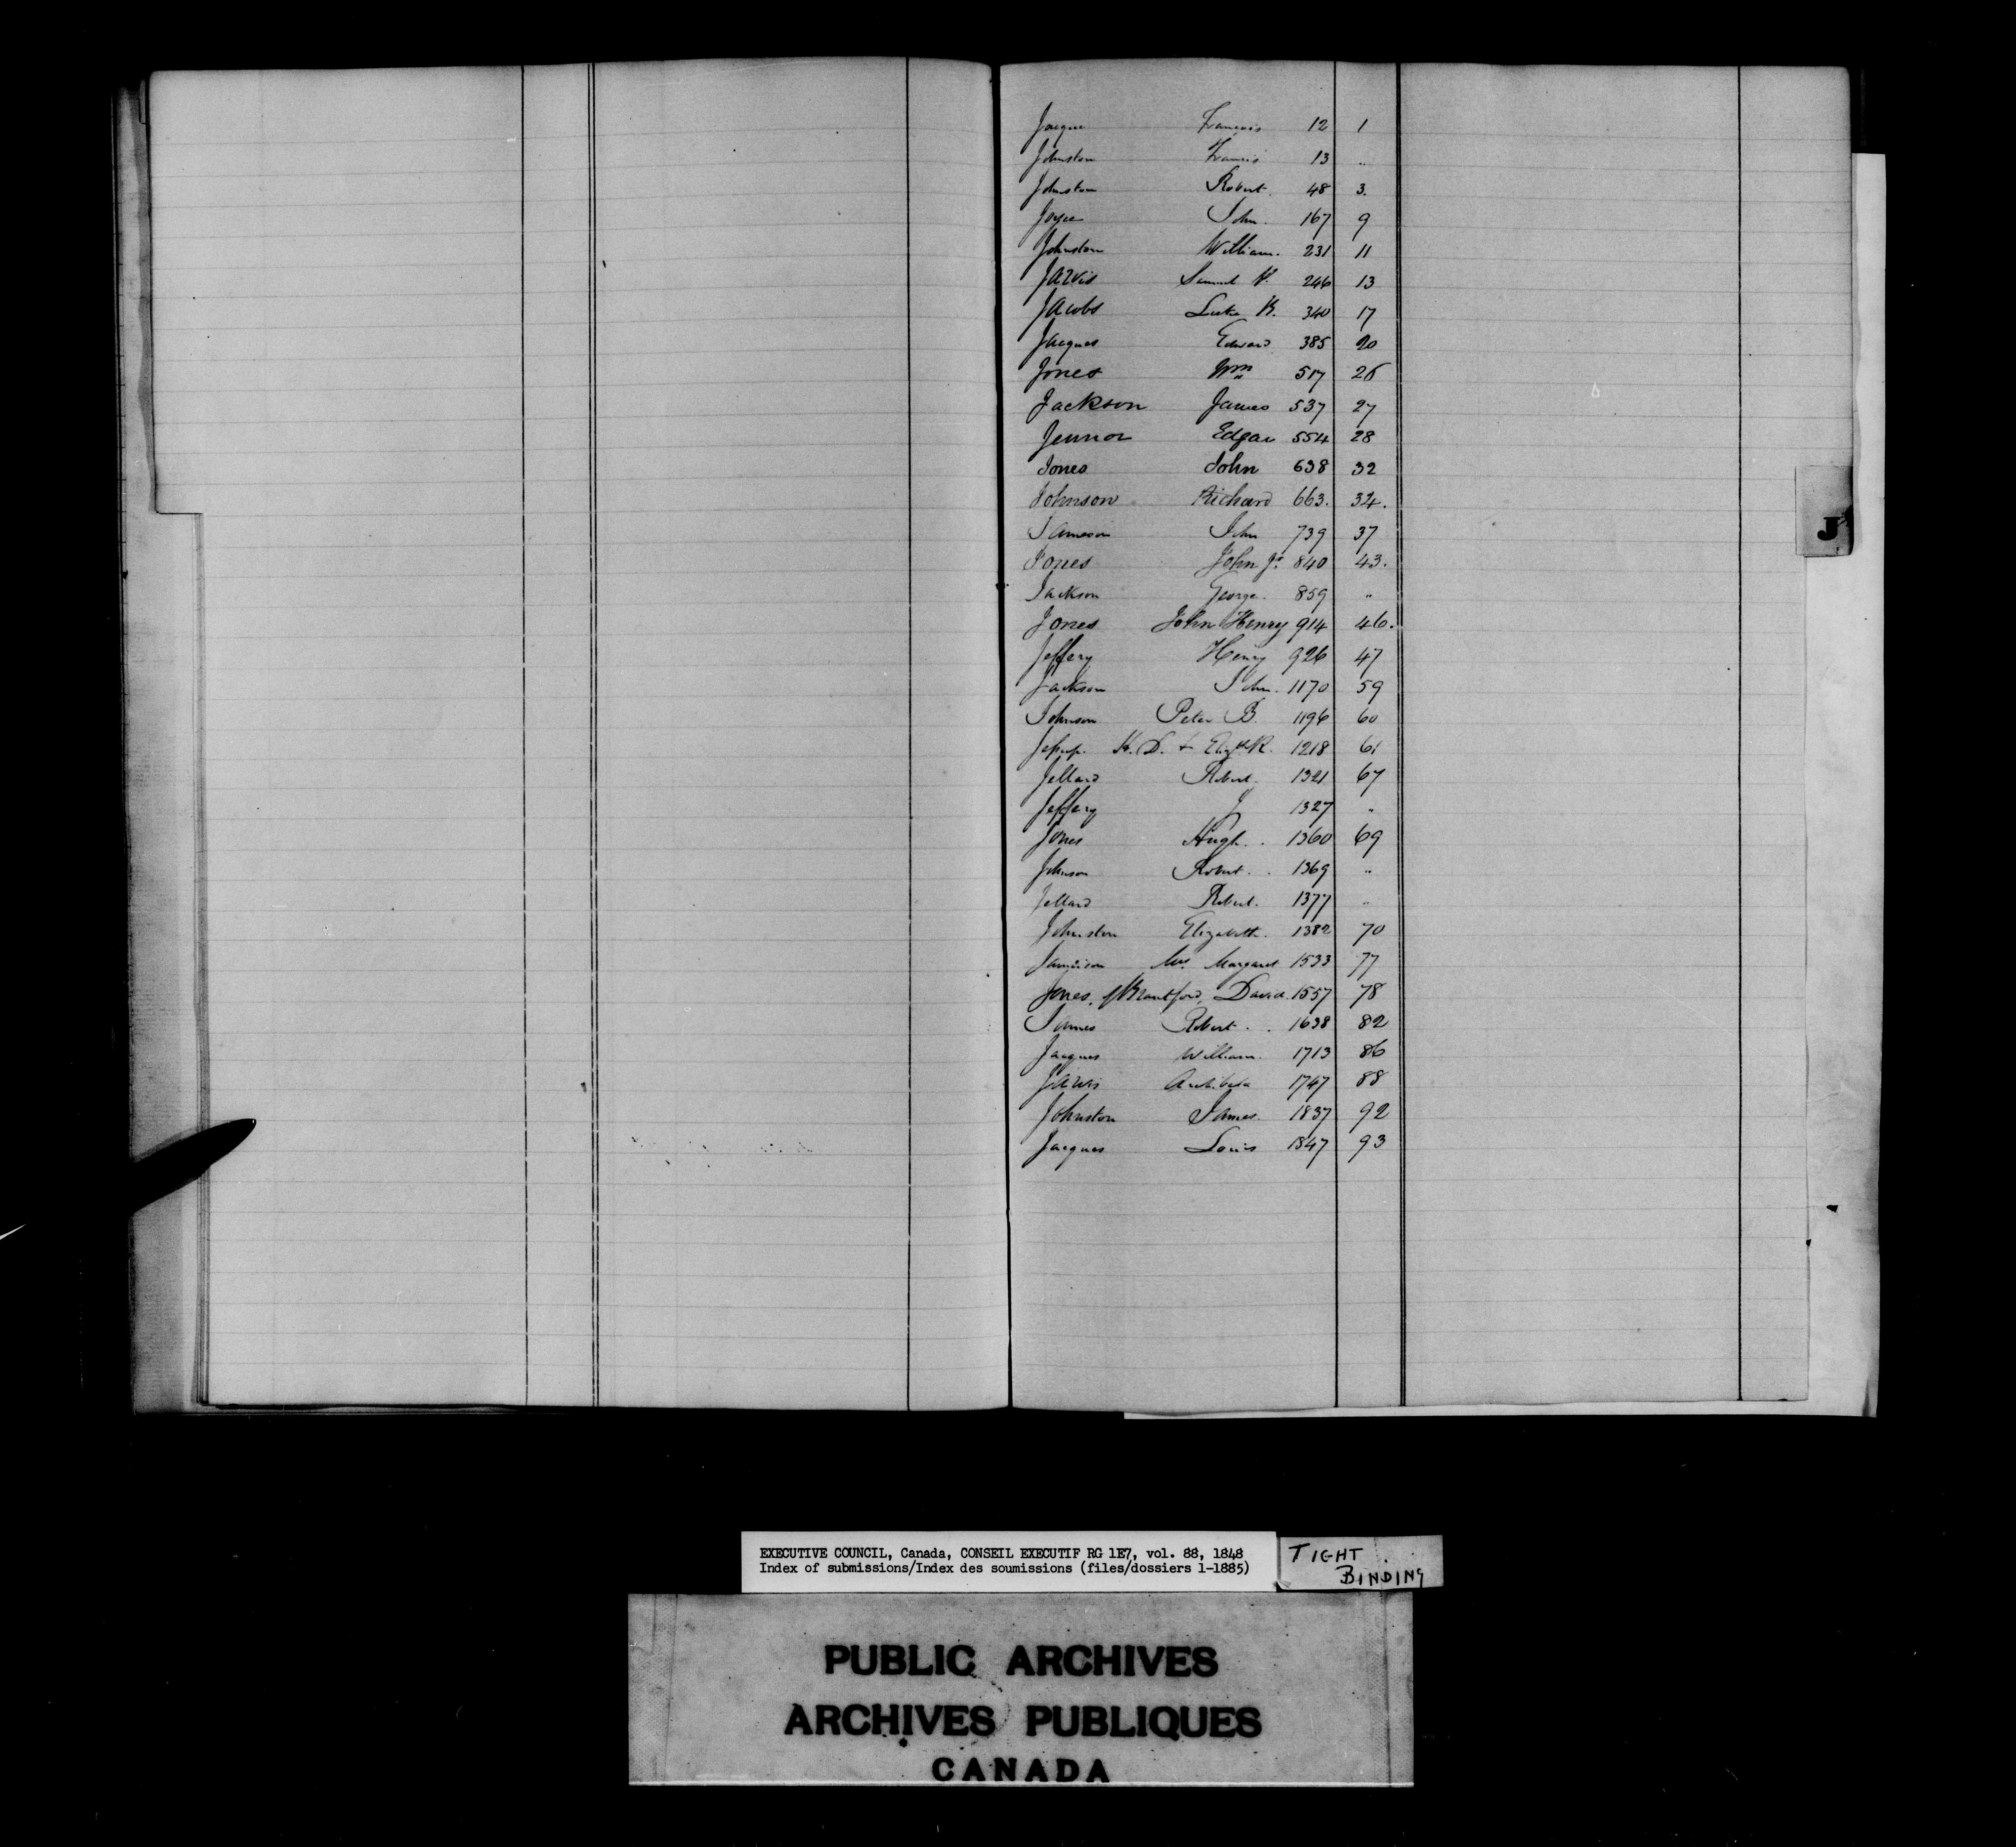 Jacque Francois 12 1
Johnston Francis 13 "
Johnston Robert. 48 3.
Joyce John. 167 9
Johnston William. 231 11
Jarvis Samuel P. 246 13
Jacobs Luke K. 340 17
Jacques Edward 385 20
Jones Wm 517 26
Jackson James 537 27
Jennor Edgar 554 28
Jones John 638 32
Johnson Richard 663. 34.
Jameson John 739 37
Jones John Jr. 840 43.
Jackson George. 859 "
Jones John Henry 914 46.
Jeffery Henry 926 47
Jackson John. 1170 59
Johnson Peter B. 1196 60
Jessup. H. D. + Elizth R. 1218 61
Jellard Robert. 1321 67
Jeffery J 1327 "
Jones Hugh. . 1360 69
Johnson Robert. . 1369 "
Jellard Robert. 1377 "
Johnston Elizabeth. 1382 70
Jamieson Mrs. Margaret 1533 77
Jones, of Brantford, David. 1557 78
James Robert. . 1638 82
Jacques William. 1713 86
Jarvis Archibald 1747 88
Johnston James. 1837 92
Jacques Louis 1847 93
J
EXECUTIVE COUNCIL, Canada, CONSEIL EXECUTIF RG 1E7, vol. 88, 1848
Index of submissions/Index des soumissions (files/dossiers 1-1885)
TIGHT
BINDING
PUBLIC ARCHIVES
ARCHIVES PUBLIQUES
CANADA